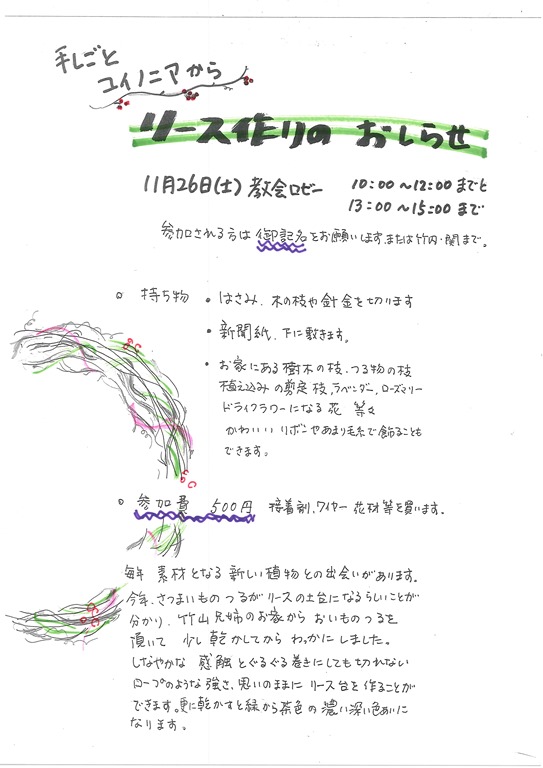 手しごと
ユイノニアから
リース作りの おしらせ
11月26日(土) 教会ロビー
10:00〜12:00 までと
13:00〜15:00 まで
参加される方は 御記名をお願いします。または竹内・関まで。
○ 持ち物 • はさみ、木の枝や針金を切ります
• 新聞紙、下に敷きます。
• お家にある樹木の枝、つる物の枝
植え込みの剪定枝、ラベンダー、ローズマリー
ドライフラワーになる花 等々
かわいい リボンやあまり毛糸で飾ることも
できます。
○ 参加費 500円 接着剤、ワイヤー 花材等を買います。
毎年 素材となる 新しい植物との出会いがあります。
今年、さつまいものつるがリースの土台になるらしいことが
分かり、竹山兄姉のお家から おいものつるを
頂いて 少し乾かしてから わっかにしました。
しなやかな 感触とぐるぐる巻きにしてもちぎれない
ロープのような強さ、思いのままに リース台を作ることが
できます。更に乾かすと緑から茶色の濃い深い色あいに
なります。